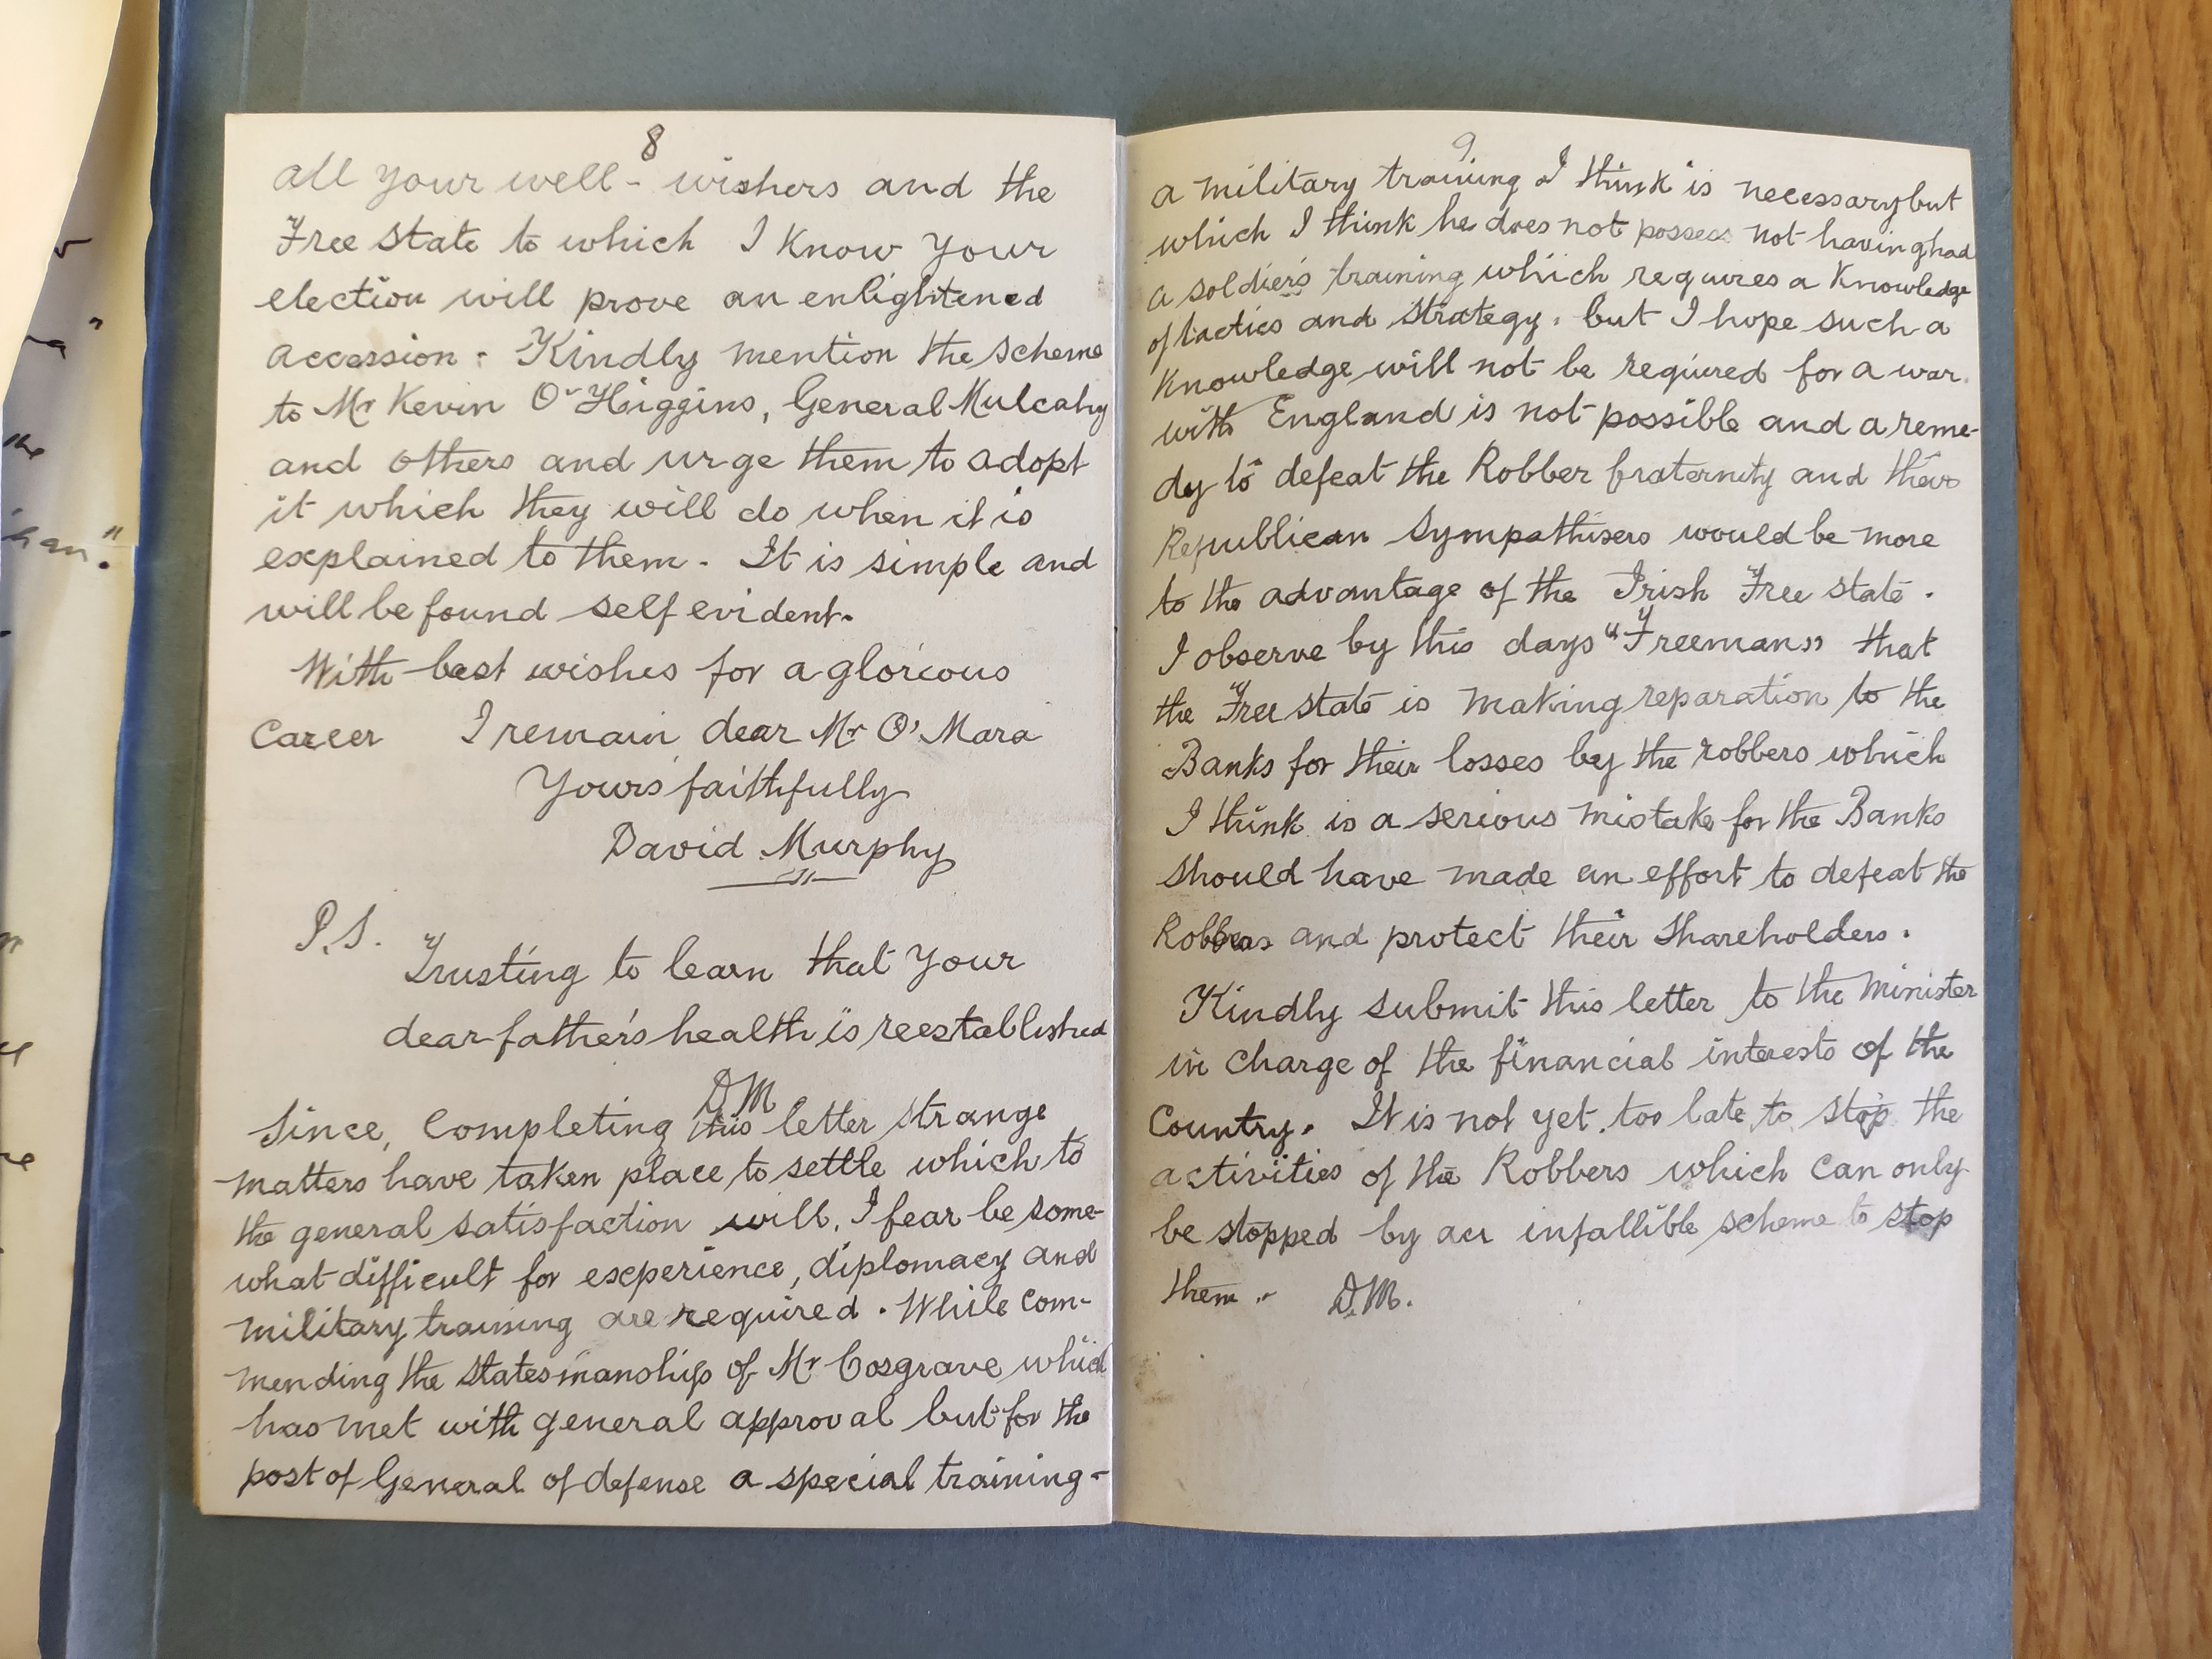 8
all your well-wishers and the
Free State to which I know your
election will prove an enlightened
accession. Kindly mention the scheme
to Mr Kevin O'Higgins, General Mulcahy
and others and urge them to adopt
it which they will do when it is
explained to them. It is simple and
will be found self evident.
With best wishes for a glorious
Career I remain dear Mr O'Mara
Yours faithfully
David Murphy
P.S.
Trusting to learn that your
dear father's health is reestablished
DM
Since, Completing this letter strange
matters have taken place to settle which to
the general satisfaction will, I fear be some-
what difficult for experience, diplomacy and
military training are required. While com-
mending the statesmanship of Mr Cosgrave which
has met with general approval but for the
post of General of defense a special training-
9
a military training I think is necessary but
which I think he does not possess not having had
a soldier's training which requires a Knowledge
of tactics and strategy, but I hope such a
Knowledge will not be required for a war
with England is not possible and a reme-
dy to defeat the Robber fraternity and their
Republican Sympathisers would be more
to the advantage of the Irish Free state.
I observe by this days "Freemans" that
the Free state is making reparation to the
Banks for their losses by the robbers which
I think is a serious mistake for the Banks
should have made an effort to defeat the
Robbers and protect their shareholders.
Kindly submit this letter to the Minister
in charge of the financial interests of the
Country. It is not yet too late to stop the
activities of the Robbers which can only
be stopped by an infallible scheme to stop
them. D.M.